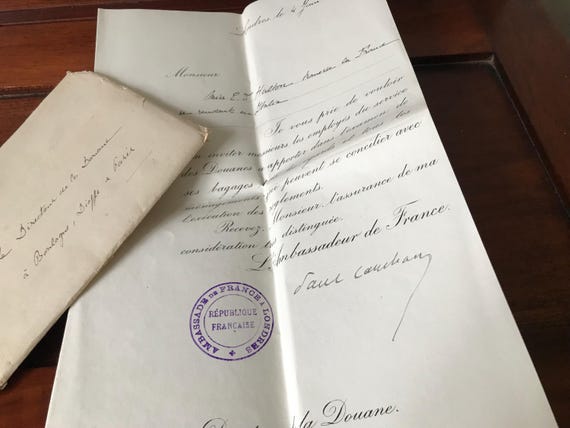 Londres, le 4 Juin
Monsieur
Miss E. J. Hatton traverse la France
se rendant en Italie
Je vous prie de vouloir
inviter messieurs les employés du service
des Douanes à apporter dans l'examen de
ses bagages tous les
ménagements qui peuvent se concilier avec
l'exécution des règlements.
Recevez, Monsieur, l'assurance de ma
considération très distinguée.
L'Ambassadeur de France.
Paul Cambon
AMBASSADE DE FRANCE À LONDRES
RÉPUBLIQUE
FRANÇAISE
la Douane.
Directeur de la Douane
à Boulogne, Dieppe & Paris